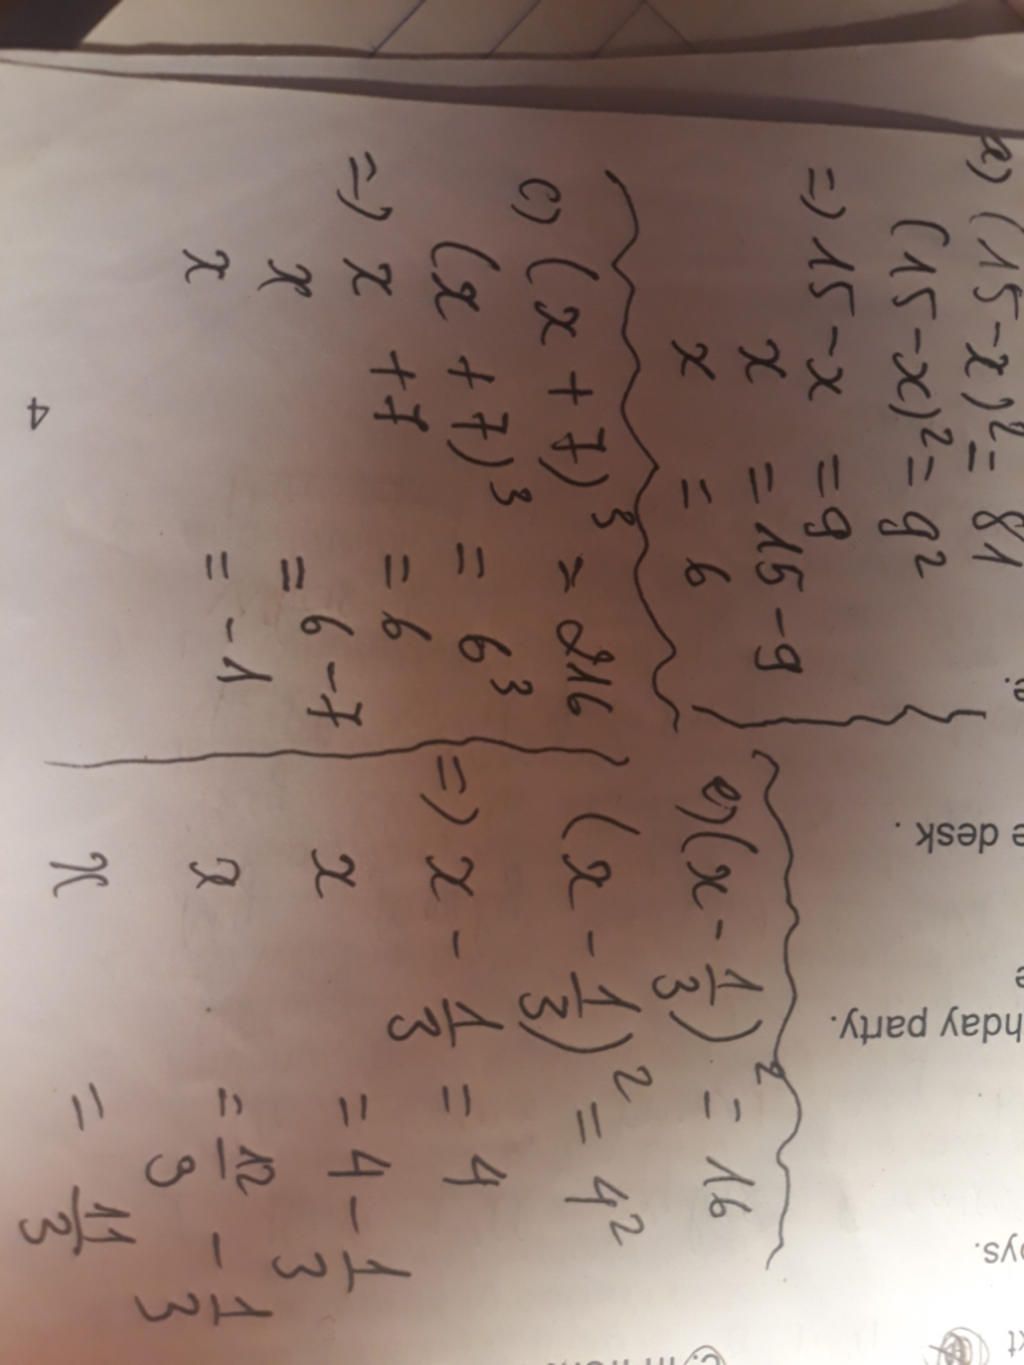 a) (15-x)² = 81
(15-x)² = 9²
=) 15-x = 9
x = 15-9
x = 6
c) (x + 7)³ = 216
(x + 7)³ = 6³
=) x + 7 = 6
x = 6 - 7
x = -1
e) (x - 1/3)² = 16
(x - 1/3)² = 4²
=) x - 1/3 = 4
x = 4 - 1/3
x = 12/3 - 1/3
x = 11/3
4
e desk .
hday party.